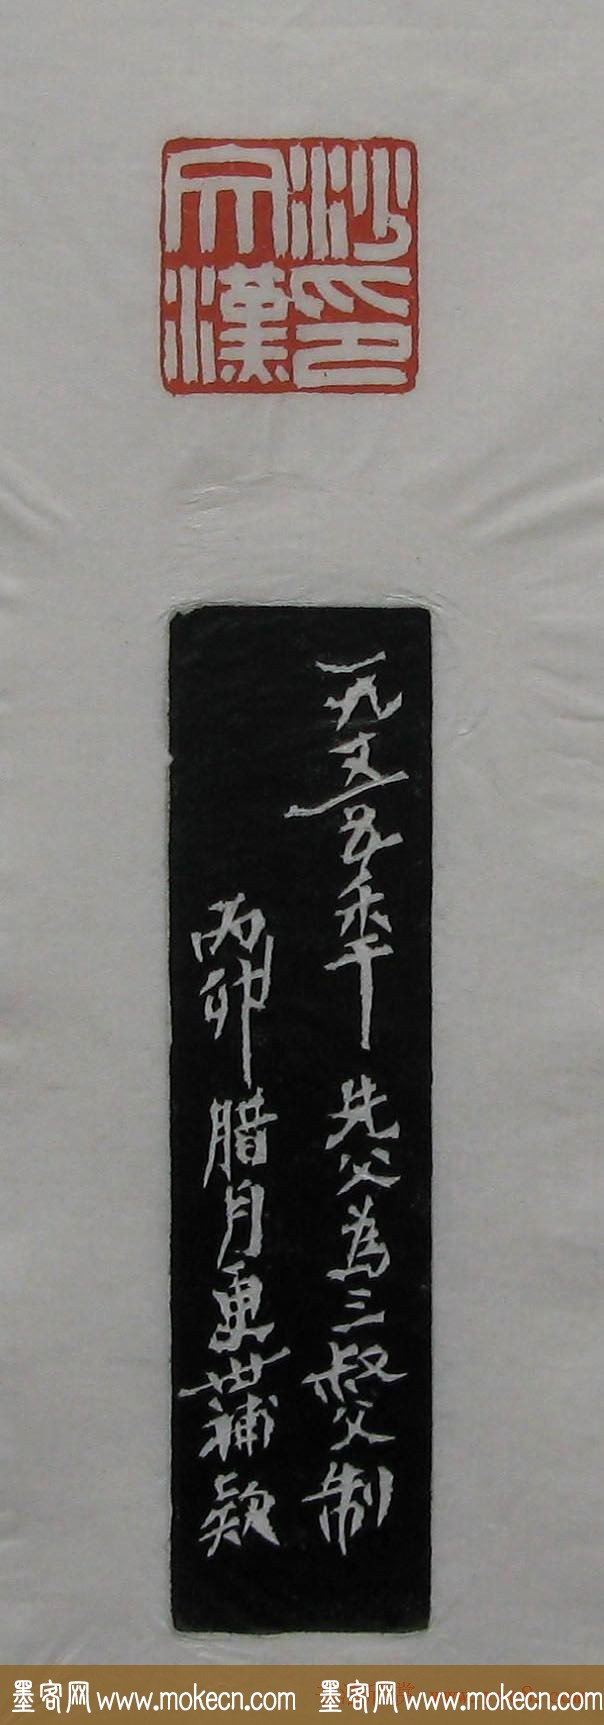 沙文漢印
一九五五年先父為三叔父制
丙卯腊月更世補款
墨客网 www.mokecn.com 墨客网 www.mokecn.com